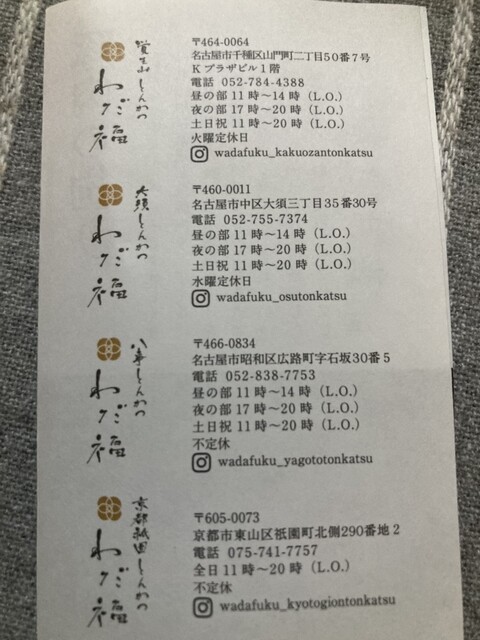 覚王山とんかつ
わだ福
〒464-0064
名古屋市千種区山門町二丁目50番7号
Kプラザビル1階
電話 052-784-4388
昼の部 11時〜14時（L.O.）
夜の部 17時〜20時（L.O.）
土日祝 11時〜20時（L.O.）
火曜定休日
wadafuku_kakuozantonkatsu
大須とんかつ
わだ福
〒460-0011
名古屋市中区大須三丁目35番30号
電話 052-755-7374
昼の部 11時〜14時（L.O.）
夜の部 17時〜20時（L.O.）
土日祝 11時〜20時（L.O.）
水曜定休日
wadafuku_osutonkatsu
八事とんかつ
わだ福
〒466-0834
名古屋市昭和区広路町字石坂30番5
電話 052-838-7753
昼の部 11時〜14時（L.O.）
夜の部 17時〜20時（L.O.）
土日祝 11時〜20時（L.O.）
不定休
wadafuku_yagototonkatsu
京都祇園とんかつ
わだ福
〒605-0073
京都市東山区祇園町北側290番地2
電話 075-741-7757
全日 11時〜20時（L.O.）
不定休
wadafuku_kyotogiontonkatsu